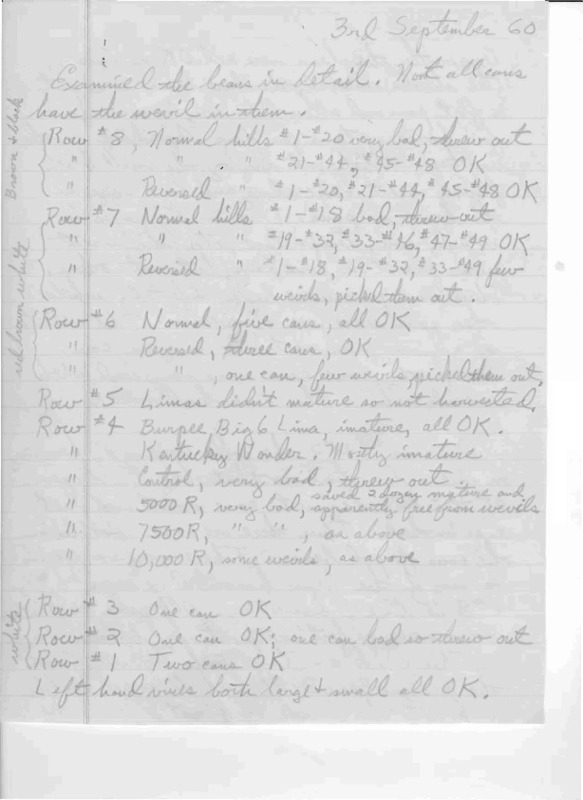 3rd September 60
Examined the beans in detail. Not all cans
have the wevil in them.
Brown & black
Row #8, Normal hills #1-#20 very bad, threw out
" " " #21-#44, #45-#48 OK
" Reversed " #1-#20, #21-#44, #45-#48 OK
red brown white
Row #7 Normal hills #1-#18 bad, threw out
" " " #19-#32, #33-#46, #47-#49 OK
" Reversed " #1-#18, #19-#32, #33-#49 few
wevils, picked them out.
Row #6 Normal, five cans, all OK
" Reversed, three cans, OK
" " , one can, few wevils, picked them out.
Row #5 Limas didn't mature so not harvested.
Row #4 Burpee Big 6 Lima, imature, all OK.
" Kentucky Wonder. Mostly imature
" Control, very bad, threw out.
" 5000 R, very bad, saved 2 dozen mature and
apparently free from wevils
" 7500 R, " " , as above
" 10,000 R, some wevils, as above
white
Row #3 One can OK
Row #2 One can OK; one can bad so threw out
Row #1 Two cans OK
Left hand vines both large & small all OK.